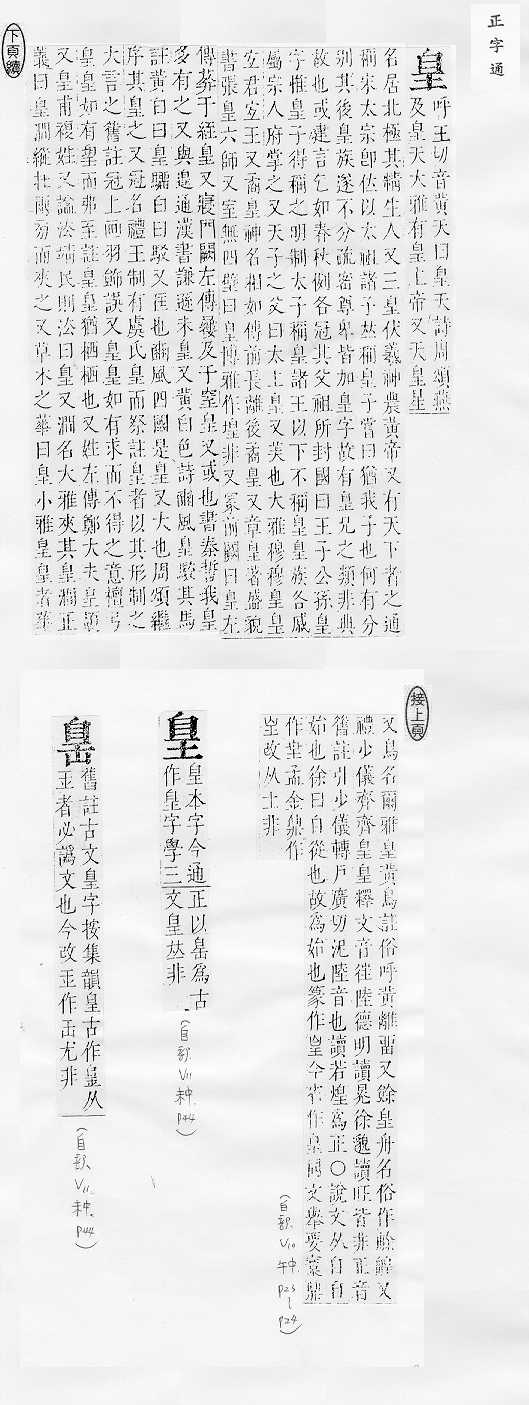 正字通
皇
呼王切音黃天曰皇天詩周頌燕
及皇天大雅有皇上帝又天皇星
名居北極其精生人又三皇伏羲神農黃帝又有天下者之通
稱宋太宗卽位以太祖諸子竝稱皇子嘗曰猶我子也何有分
別其後皇族遂不分疏密尊卑皆加皇字故有皇兄之類非典
故也或建言乞如春秋例各冠其父祖所封國曰王子公孫皇
字惟皇子得稱之明制太子稱皇諸王以下不稱皇皇族各戚
屬宗人府掌之又天子之父曰太上皇又美也大雅穆穆皇皇
宜君宜王又喬皇神名相如傳前長離後喬皇又章皇著盛貌
書張皇六師又室無四壁曰皇博雅作堭非又冢前闕曰皇左
傳葬于絰皇又寢門闕左傳屨及于窒皇又或也書秦誓我皇
多有之又與遑通漢書謙遜未皇又黃白色詩豳風皇駁其馬
註黃白曰皇騮白曰駁又匡也豳風四國是皇又大也周頌繼
序其皇之又冠名禮王制有虞氏皇而祭註皇者以其形制之
大言之舊註冠上畫羽飾誤又皇皇如有求而不得之意檀弓
皇皇如有望而弗至註皇皇猶栖栖也又姓左傳鄭大夫皇頡
又皇甫複姓又諡法靖民則法曰皇又澗名大雅夾其皇澗正
義曰皇澗縱在兩旁而夾之又草木之華曰皇小雅皇皇者華
下頁續
接上頁
又鳥名爾雅皇黃鳥註俗呼黃離畱又餘皇舟名俗作艅艎又
禮少儀齊齊皇皇釋文音往陸德明讀晃徐邈讀旺皆非正音
舊註引少儀轉戶廣切泥陸音也讀若煌爲正○說文从自自
始也徐曰自從也故爲始也篆作皇今省作皇周文舉要寰鼎
作𦤃孟金鼎作
𦤃改从士非
(自歌 V10 午中 P23~P24)
皇
皇本字今通正以𤽙爲古
作皇字學三文皇竝非
(自歌 V11 未中 P44)
舊註古文皇字按集韻皇古作𤽙从
王者必譌文也今改王作击尤非
(自歌 V11 未中 P44)